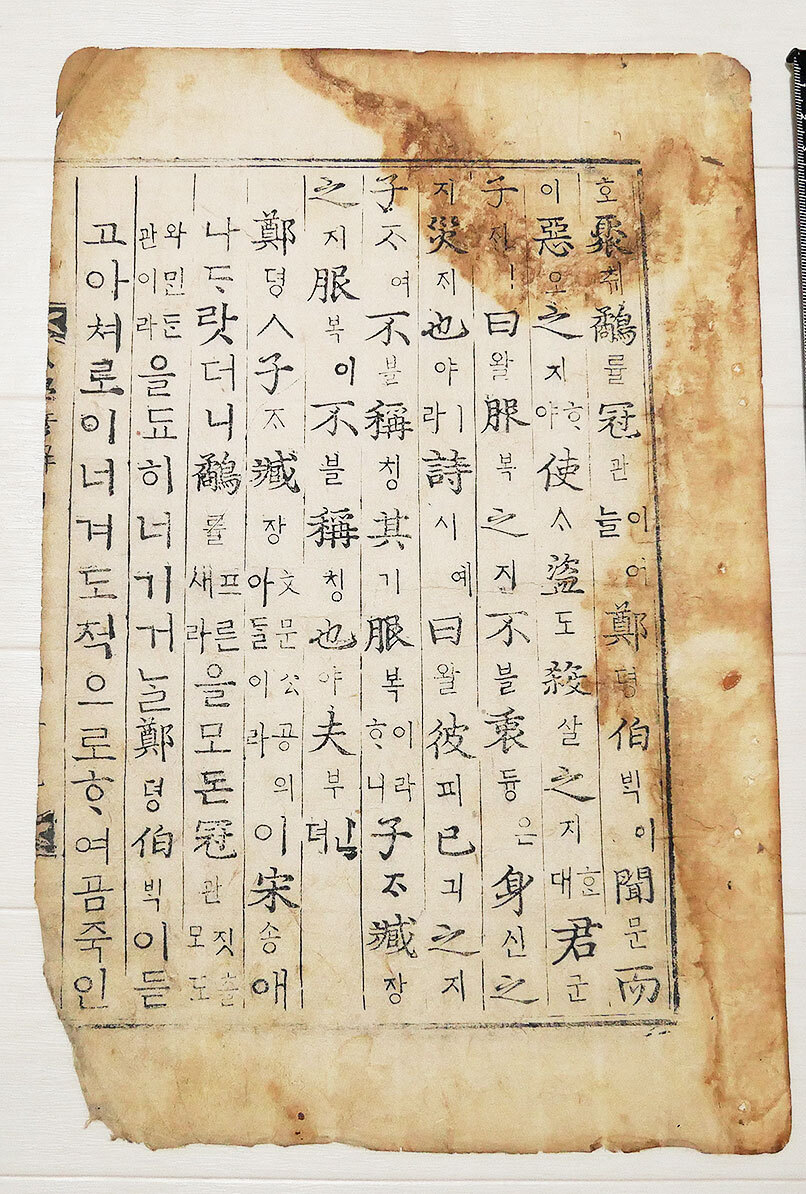 호聚취鷸률冠관이어늘鄭뎡伯ᄇᆡᆨ이聞문而
이惡오之지ᄒᆞ야使ᄉᆞ盜도殺살之지ᄒᆞᆫ대君군
子ᄌᆞㅣ曰왈服복之지不블衷듕은身신之
지災ᄌᆡ也야ㅣ라詩시예曰왈彼피己긔之지
子ᄌᆞ여不블稱칭其기服복이라ᄒᆞ니子ᄌᆞ臧장
之지服복이不블稱칭也야夫부ᅟᅵᆫ뎌
鄭뎡ㅅ子ᄌᆞ臧장文문公공의아ᄃᆞᆯ이라이宋송애
나ᄃᆞ랏더니鷸률프른새라을모돈冠관짓츨모도
와민ᄃᆞᆫ관이라을됴히너기거ᄂᆞᆯ鄭뎡伯ᄇᆡᆨ이듣
고아쳐로이너겨도적으로ᄒᆞ여곰죽인